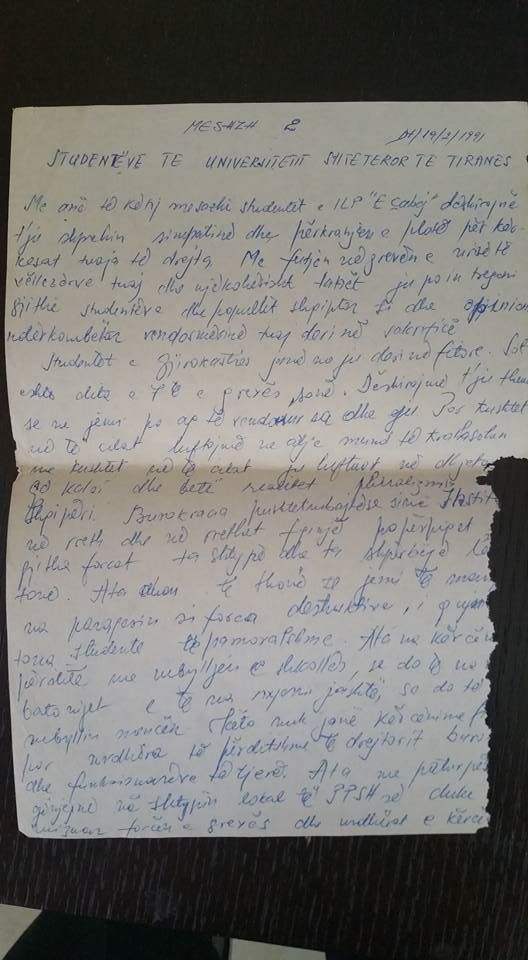 MESAZH 2
Dt/19/2/1991
STUDENTËVE TE UNIVERSITETIT SHTETEROR TE TIRANËS
Me anë të këtij mesazhi studentët e ILP "E Çabej" dëshirojnë
t'ju shprehin simpatinë dhe përkrahjen e plotë për kër-
kesat tuaja të drejta. Me futjen në grevën e urisë të
vëllezërve tuaj dhe njëkohësisht ju po in tregoni
gjithë studentëve dhe popullit shqiptar si dhe opinion
ndërkombëtar vendosmërinë tuaj deri në sakrificë
Studentët e Gjirokastrës janë me ju deri në fitore. Sot
është dita e 7të e grevës sonë. Dëshirojmë t'ju them
se ne jemi po aq të vendosur sa dhe ju. Por kushtet
në të cilat luftojmë ne as që mund të krahasohen
me kushtet në të cilat ju luftuat në dhjetor
që kaloi dhe bëtë realitet pluralizmin
Shqipëri. Burokracia
në rreth dhe në rrethet
gjitha forcat ta shtypë dhe ta shpërbëjë
tonë. Ata duan të thonë se jemi të
na paraqesin si forca destruktive, i quajnë
tona studente të pamoralshme. Ata na kërcën
përditë me mbylljen e shkollës, se do të na
e të na nxjerrin jashtë, se do të
mbyllin mencën. Këto nuk janë kërcënime
por urdhëra të përditshme të drejtorit
dhe funksionarëve të tjerë. Ata me
gënjejnë në shtypin lokal të PPSH së duke
forcën e grevës dhe